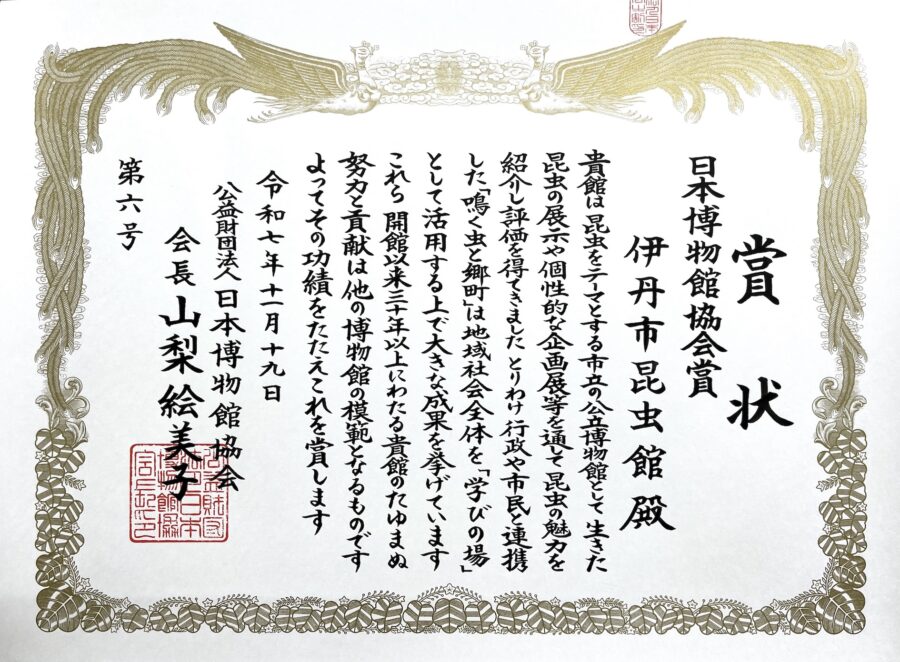 賞状
日本博物館協会賞
伊丹市昆虫館殿
貴館は昆虫をテーマとする市立の公立博物館として生きた
昆虫の展示や個性的な企画展等を通して昆虫の魅力を
紹介し評価を得てきました とりわけ行政や市民と連携
した「鳴く虫と郷町」は地域社会全体を「学びの場」
として活用する上で大きな成果を挙げています
これら 開館以来三十年以上にわたる貴館のたゆまぬ
努力と貢献は他の博物館の模範となるものです
よってその功績をたたえこれを賞します
令和七年十一月十九日
公益財団法人日本博物館協会
会長 山梨絵美子
第六号